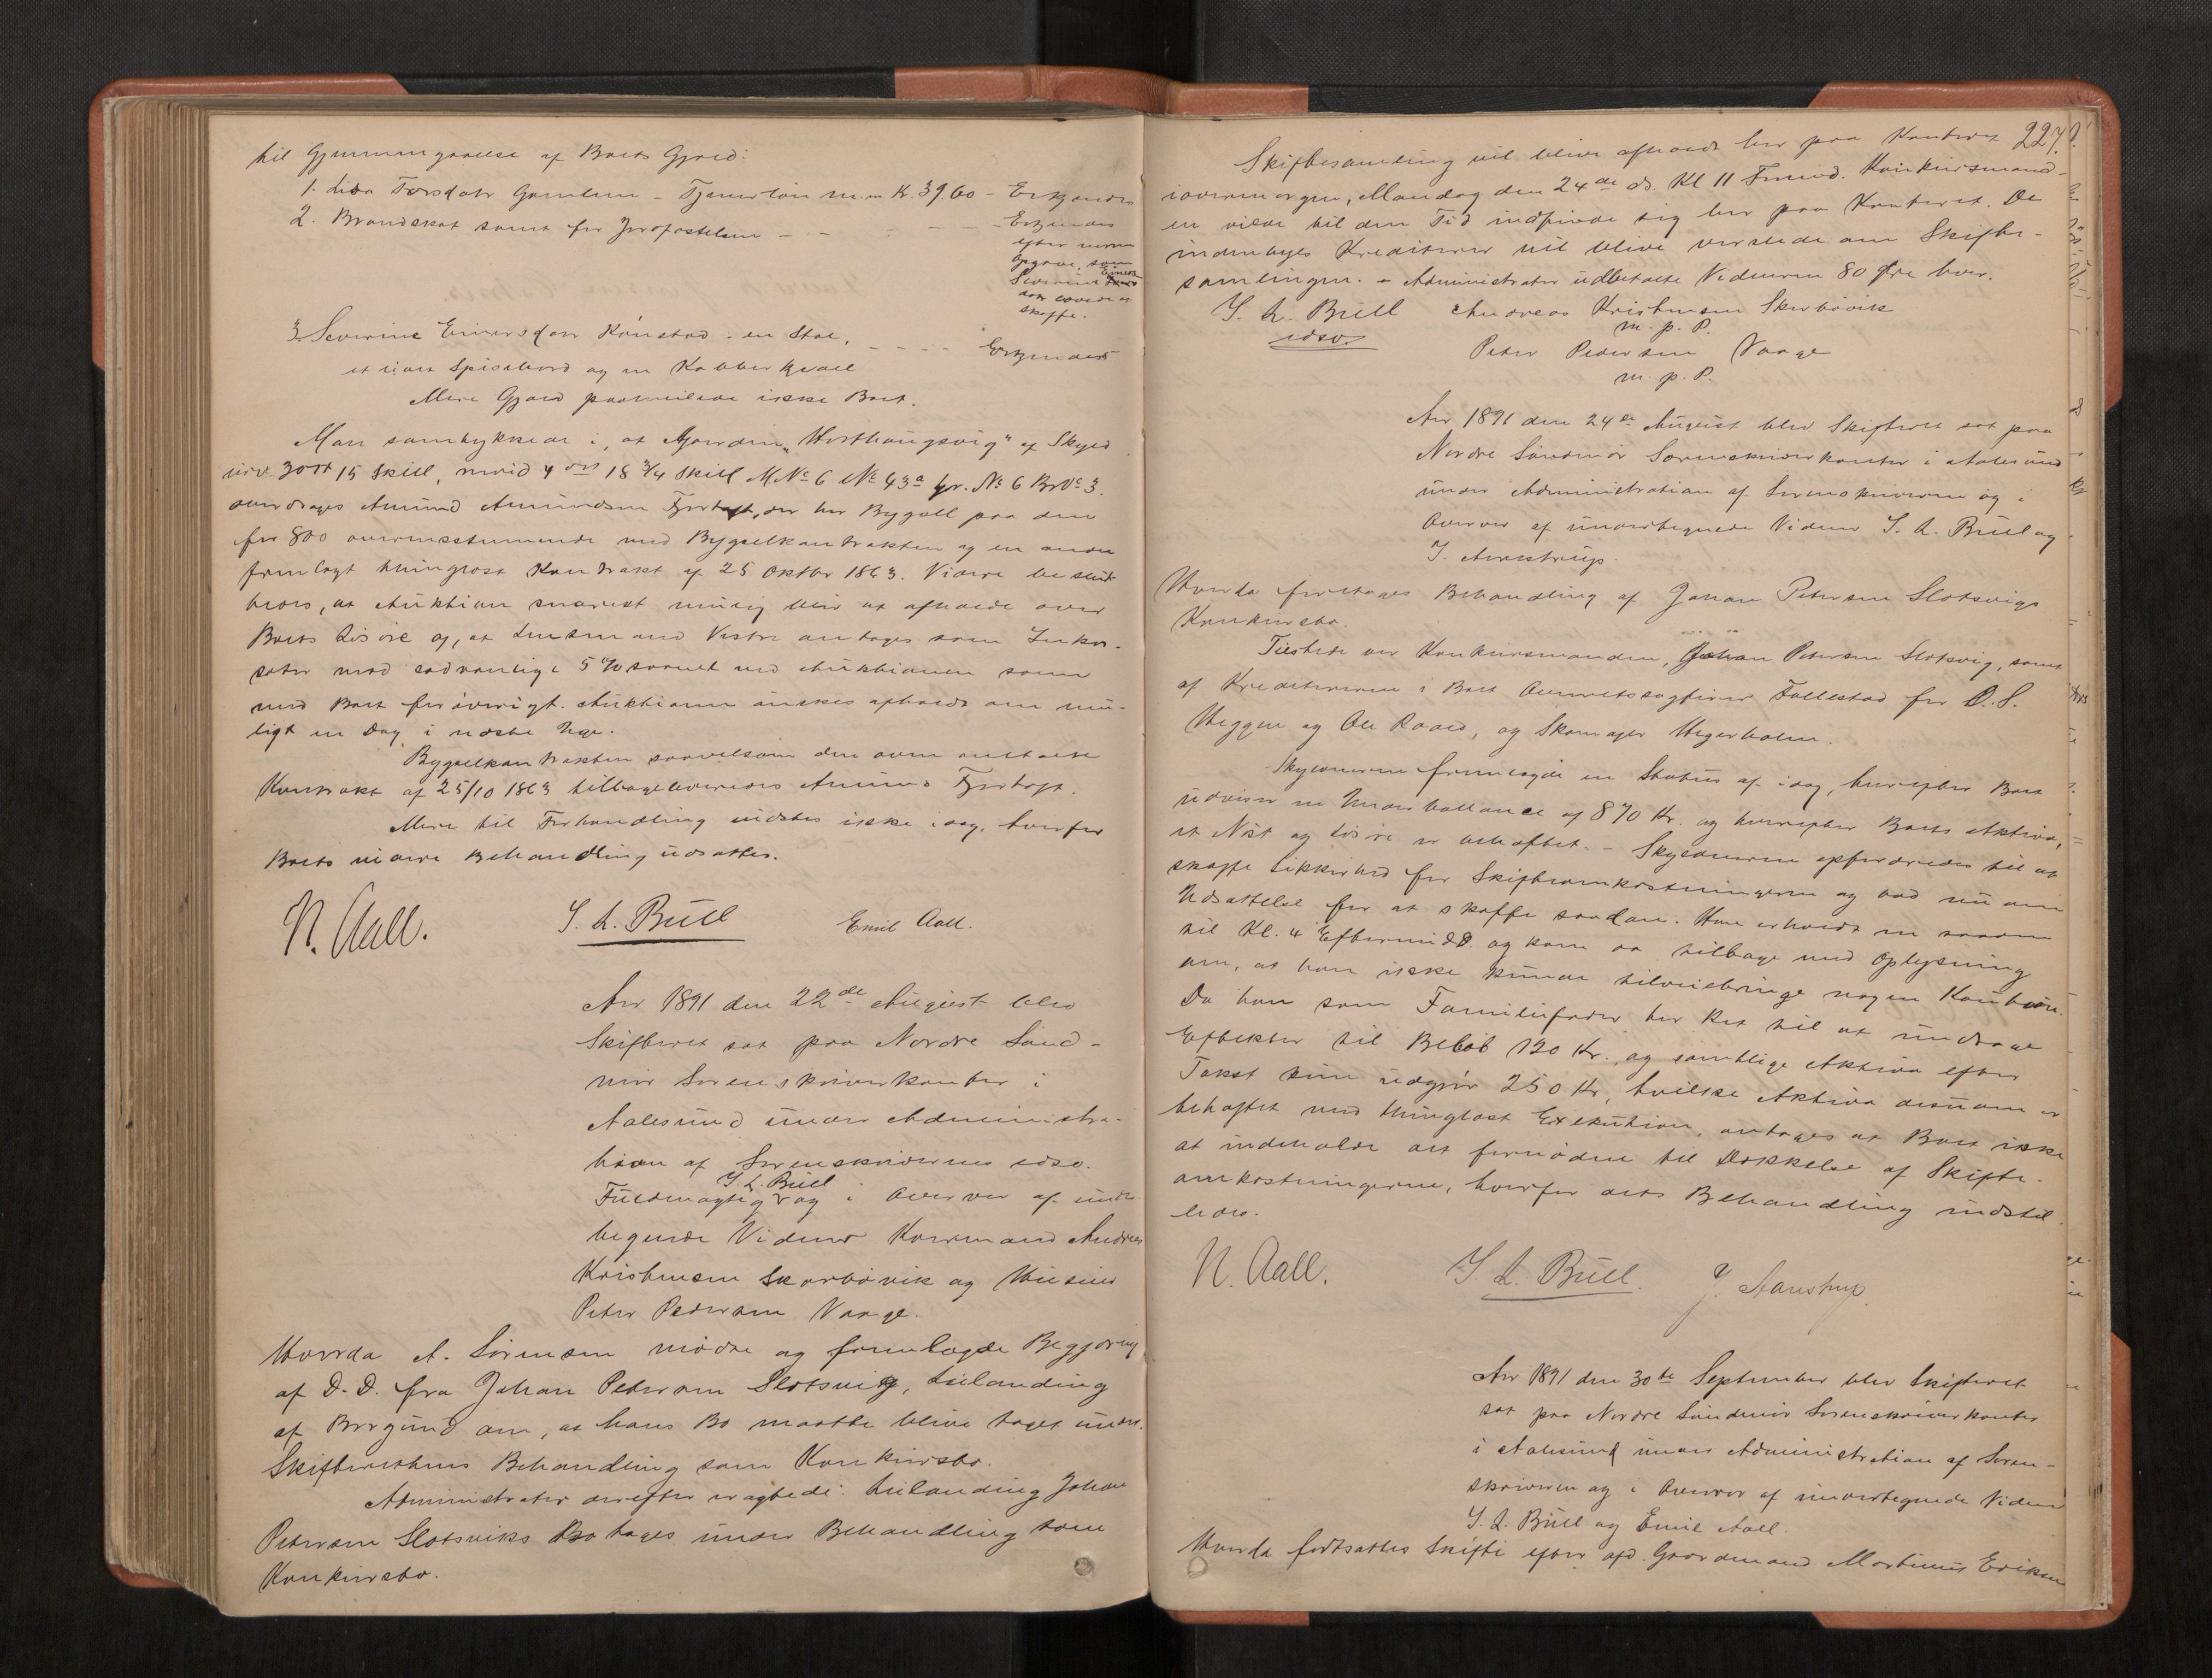 til Gjennemgaaelse af Boets Gjæld:
1. Lisa Torsdatr Gamlem - Tjenerløn m. m Kr. 39.60 - Erkjendes
2. Brandskat samt for Jordafgifter - - - - - Erkjendes
efter nærm
Opgave, som
Severine Einers
datr lovede at
skaffe.
3 Severine Einersdatr Rønstad - en Stol, - - - - Erkjendes
et rundt Spisebord og en Kobberkjedel
Mere Gjæld paameldes ikke Boet.
Man samtykkede i, at Gaarden "Horthaugsvig" af Skyld
urev. 30rt 15 Skill, revid 4 ort 18 3/4 Skill M No 6 No 43a Gr. No 6 Br No 3.
overdrages Amund Amundsen Fjørtoft, der har Bygsel paa den
for 800 overensstemmende med Bygselkontrakten og en anden
fremlagt thinglæst Kontrakt af 25 Oktbr 1863. Videre beslut-
tedes, at Auktion snarest mulig blir at afholde over
Boets Løsøre og, at Lensmand Vestre antages som Inkas-
sator mod sædvanlige 5 % saavel ved Auktionen som
ved Boet forøvrigt. Auktionen ønskes afholdt om mu-
ligt en Dag i næste Uge.
Bygselkontrakten saavelsom den oven anførte
Kontrakt af 25/10 1863 tilbageleveredes Amund Fjørtoft.
Mere til Forhandling vidstes ikke idag, hvorfor
Boets videre Behandling udsattes.
N. Aall. S. L. Bull Emil Aall.
Aar 1891 den 22de August blev
Skifteret sat paa Nordre Sønd-
mør Sorenskriverkontor i
Aalesund under Administra-
tion af Sorenskriverens edsv.
Fuldmægtig S. L. Bull og i Overvær af under-
tegnede Vidner Kornmand Andreas
Kristensen Skarbøvik og Husmd
Peter Pedersen Vaage.
Hvorda A. Sørensen mødte og fremlagde Begjæring
af D. D. fra Johan Petersen Slotsvig, Lislanding
af Borgund om, at hans Bo maatte blive taget under
Skifterettens Behandling som Konkursbo.
Administrator derefter vagtede: Lislanding Johan
Petersen Slotsviks Bo tages under Behandling som
Konkursbo.
227.
Skiftesamling vil blive afholdt her paa Kontoret
iovermorgen, Mandag den 24de ds. Kl 11 Formd. Konkursmand-
en vilde til den Tid indfinde sig her paa Kontoret. De
indenbyes Kreditorer vil blive varslede om Skifte-
samlingen. - Administrator udbetalte Vidnerne 80 Øre hver.
S. L. Bull Andreas Kristensen Skarbøvik
edsv. m. p. P.
Peter Pedersen Vaage
m. p. P.
Aar 1891 den 24de August blev Skifteret sat paa
Nordre Søndmør Sorenskriverkontor i Aalesund
under Administration af Sorenskriveren og i
Overvær af undertegnede Vidner S. L. Bull og
J. Aarestrup.
Hvorda foretages Behandling af Johan Petersen Slotsvigs
Konkursbo.
Tilstede var Konkursmanden, Johan Petersen Slotsvig, samt
af Kreditorerne i Boet Overretssagfører Follestad for O. S.
Heggen og Ole Roald, og Skomager Hegerholm.
Skyldneren fremlagde en Status af idag, hvorefter Boet
udviser en Underballance af 870 Kr. og hvorefter Boets Aktiva,
et Nøst og Løsøre er behæftet. - Skyldneren opfordredes til at
skaffe Sikkerhed for Skifteomkostningerne og bad nu om
Udsættelse for at skaffe saadan. Han erholdt en saadan
til Kl. 4 Eftermidd. og kom da tilbage med Oplysning
om, at han ikke kunde tilveiebringe nogen Kaution.
Da han som Familiefader har Ret til at unddrage
Effekter til Beløb 120 Kr. og samtlige Aktiva efter
Takst kun udgjør 250 Kr, hvilke Aktiva desuden er
behæftet med thinglæst Exekution, antages at Boet ikke
at indeholde det fornødne til Dækkelse af Skifte-
omkostningerne, hvorfor dets Behandling indstil-
ledes.
N. Aall. S. L. Bull. J. Aarestrup.
Aar 1891 den 30te September blev Skifteret
sat paa Nordre Søndmør Sorenskriverkontor
i Aalesund under Administration af Soren-
skriveren og i Overvær af undertegnede Vidner
S. L. Bull og Emil Aall.
Hvorda fortsattes Skifte efter afd. Gaardmand Martinus Eriksen